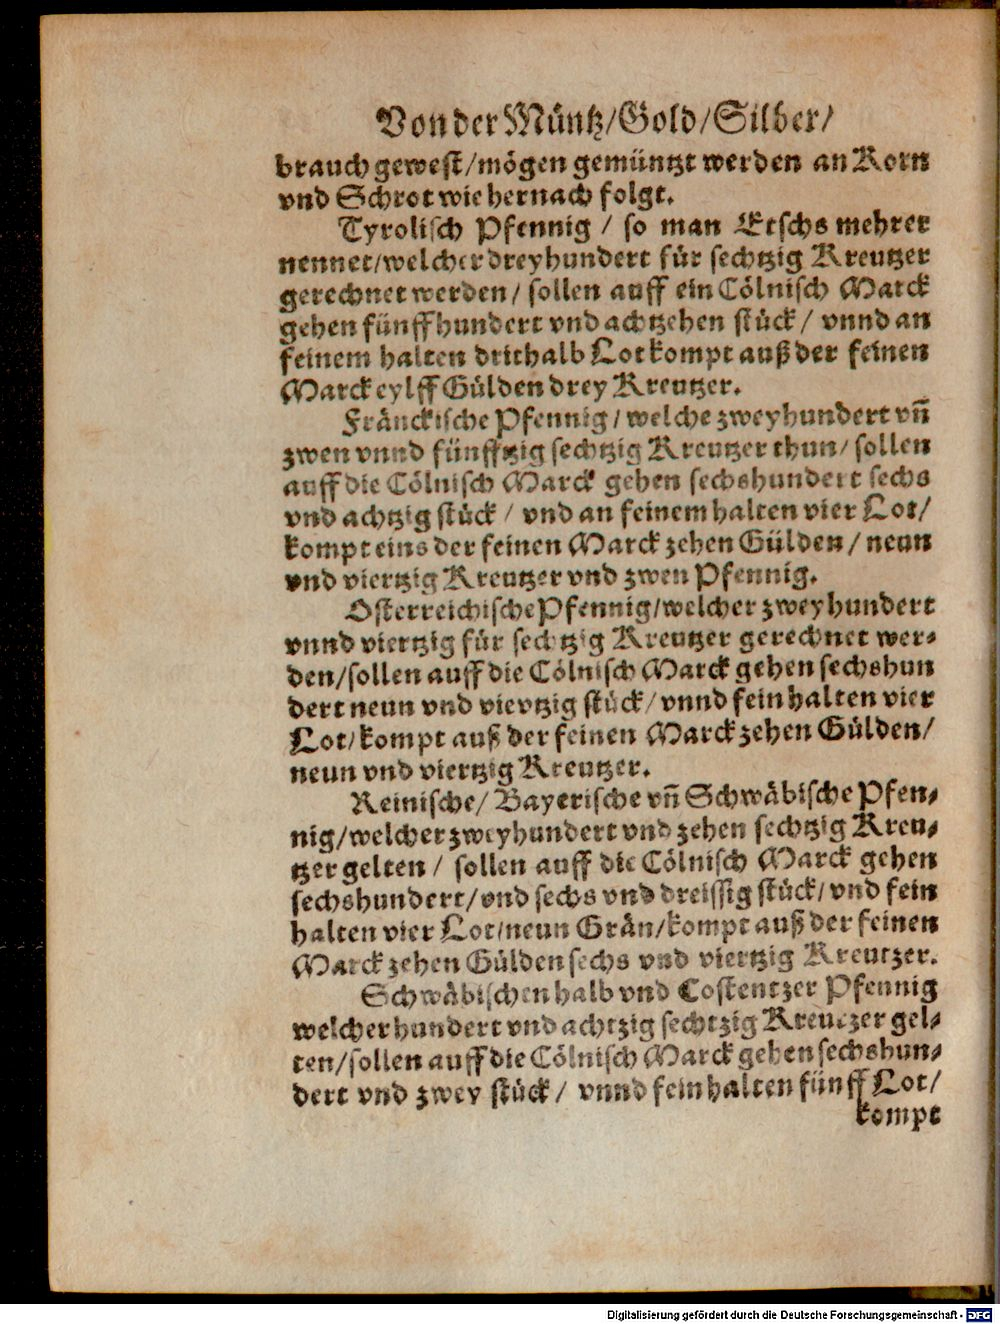 Von der Müntz/Gold/Silber/
brauch gewest/mögen gemüntzt werden an Korn
vnd Schrot wie hernach folgt.
Tyrolisch Pfennig / so man Etschs mehrer
nennet/welcher dreyhundert für sechtzig Kreutzer
gerechnet werden/ sollen auff ein Cölnisch Marck
gehen fünffhundert vnd achtzehen stück/ vnnd an
feinem halten drithalb Lot kompt auß der feinen
Marck eylff Gülden drey Kreutzer.
Fränckische Pfennig/welche zweyhundert vn̄
zwen vnnd fünfftzig sechtzig Kreutzer thun/ sollen
auff die Cölnisch Marck gehen sechshundert sechs
vnd achtzig stück / vnd an feinem halten vier Lot/
kompt eins der feinen Marck zehen Gülden / neun
vnd viertzig Kreutzer vnd zwen Pfennig.
Osterreichische Pfennig/welcher zweyhundert
vnnd viertzig für sechtzig Kreutzer gerechnet wer-
den/sollen auff die Cölnisch Marck gehen sechshun
dert neun vnd viertzig stück/ vnnd fein halten vier
Lot/kompt auß der feinen Marck zehen Gülden/
neun vnd viertzig Kreutzer.
Reinische/ Bayerische vn̄ Schwäbische Pfen-
nig/welcher zweyhundert vnd zehen sechtzig Kreu-
tzer gelten / sollen auff die Cölnisch Marck gehen
sechshundert/vnd sechs vnd dreissig stück/vnd fein
halten vier Lot/neun Grän/kompt auß der feinen
Marck zehen Gülden sechs vnd viertzig Kreutzer.
Schwäbischen halb vnd Costentzer Pfennig
welcher hundert vnd achtzig sechtzig Kreutzer gel-
ten/sollen auff die Cölnisch Marck gehen sechshun-
dert vnd zwey stück/ vnnd fein halten fünff Lot/
kompt
Digitalisierung gefördert durch die Deutsche Forschungsgemeinschaft - DFG